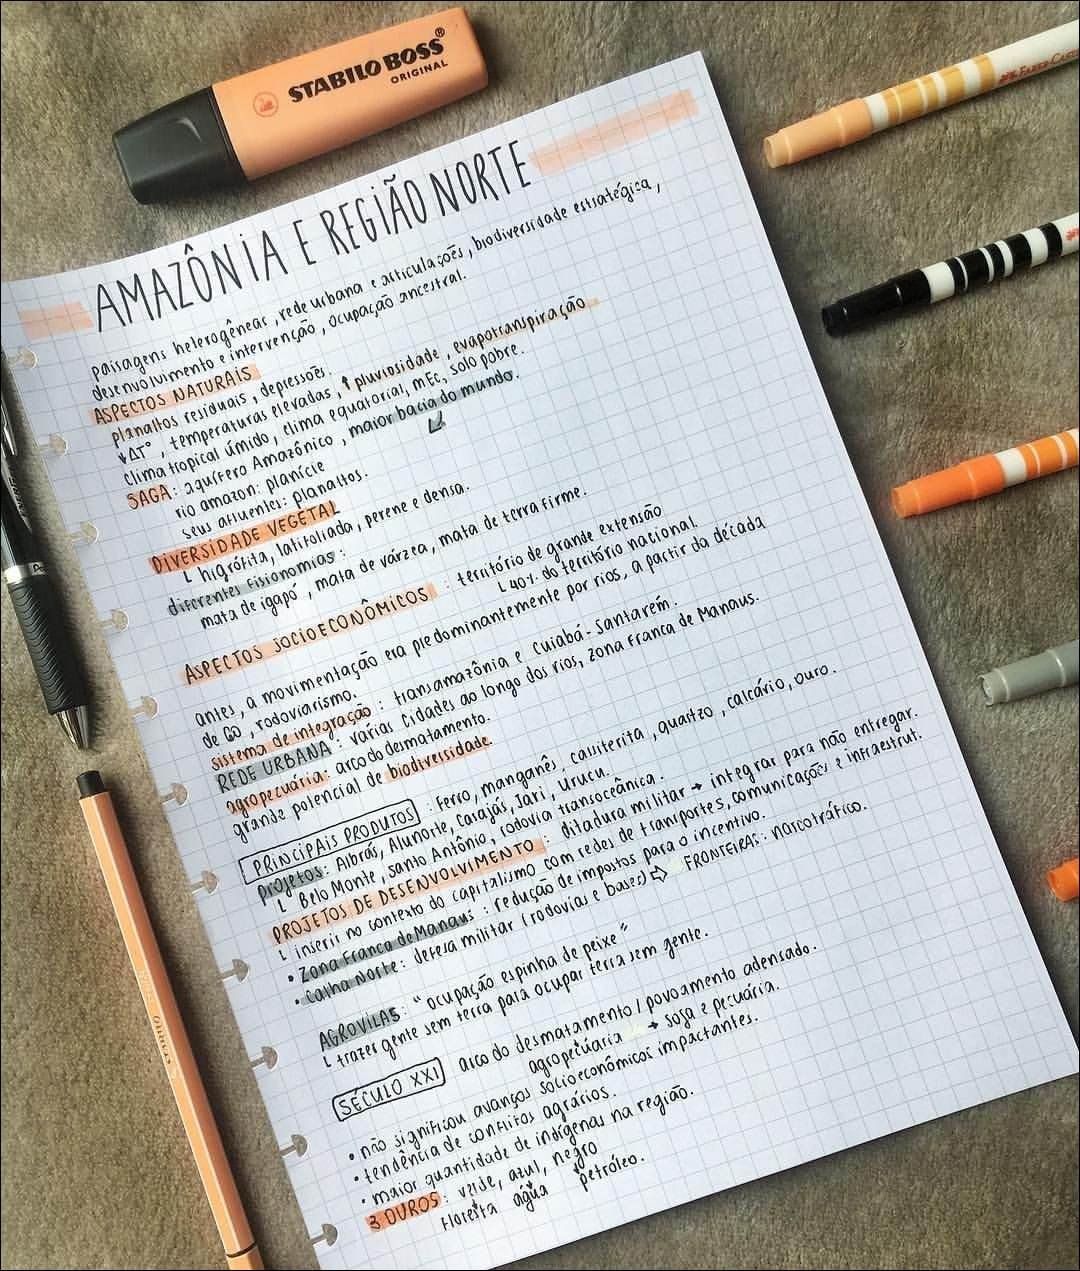 STABILO BOSS®
ORIGINAL
FABER-CASTELL
AMAZÔNIA E REGIÃO NORTE
paisagens heterogêneas, rede urbana e articulações, biodiversidade estratégica,
desenvolvimento e intervenção, ocupação ancestral.
ASPECTOS NATURAIS
planaltos residuais, depressões.
↓ΔT°, temperaturas elevadas, ↑ pluviosidade, evapotranspiração
clima tropical úmido, clima equatorial, mEc, solo pobre.
SAGA: aquífero Amazônico, maior bacia do mundo.
rio amazon: planície
seus afluentes: planaltos.
DIVERSIDADE VEGETAL
└ higrófita, latifoliada, perene e densa.
diferentes fisionomias:
mata de igapó, mata de várzea, mata de terra firme.
ASPECTOS SOCIOECONÔMICOS: território de grande extensão
└ 40% do território nacional.
antes, a movimentação era predominantemente por rios, a partir da década
de 60, rodoviarismo.
sistema de integração: transamazônia e Cuiabá-Santarém.
REDE URBANA: várias cidades ao longo dos rios, zona franca de Manaus.
agropecuária: arco do desmatamento.
grande potencial de biodiversidade.
PRINCIPAIS PRODUTOS: ferro, manganês, cassiterita, quartzo, calcário, ouro.
projetos: Albrás, Alunorte, Carajás, Jari, Urucu.
└ Belo Monte, Santo Antônio, rodovia transoceânica.
PROJETOS DE DESENVOLVIMENTO: ditadura militar → integrar para não entregar.
└ inserir no contexto do capitalismo com redes de transportes, comunicações e infraestrut.
• Zona Franca de Manaus: redução de impostos para o incentivo.
• Calha Norte: defesa militar (rodovias e bases) ⇨ FRONTEIRAS: narcotráfico.
AGROVILAS: "ocupação espinha de peixe"
└ trazer gente sem terra para ocupar terra sem gente.
SÉCULO XXI arco do desmatamento / povoamento adensado.
agropecuária → soja e pecuária.
• não significou avanços socioeconômicos impactantes.
• tendência de conflitos agrários.
• maior quantidade de indígenas na região.
3 OUROS: verde, azul, negro
floresta água petróleo.